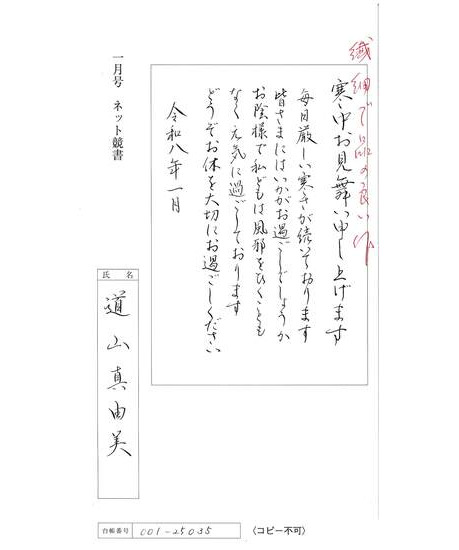 繊細で品の良い作
寒中お見舞い申し上げます
毎日厳しい寒さが続いております
皆さまにはいかがお過ごしでしょうか
お陰様で私どもは風邪をひくことも
なく元気に過ごしております
どうぞお体を大切にお過ごしください
令和八年一月
一月号 ネット競書
氏名
道山真由美
台帳番号 001-25035
〈コピー不可〉